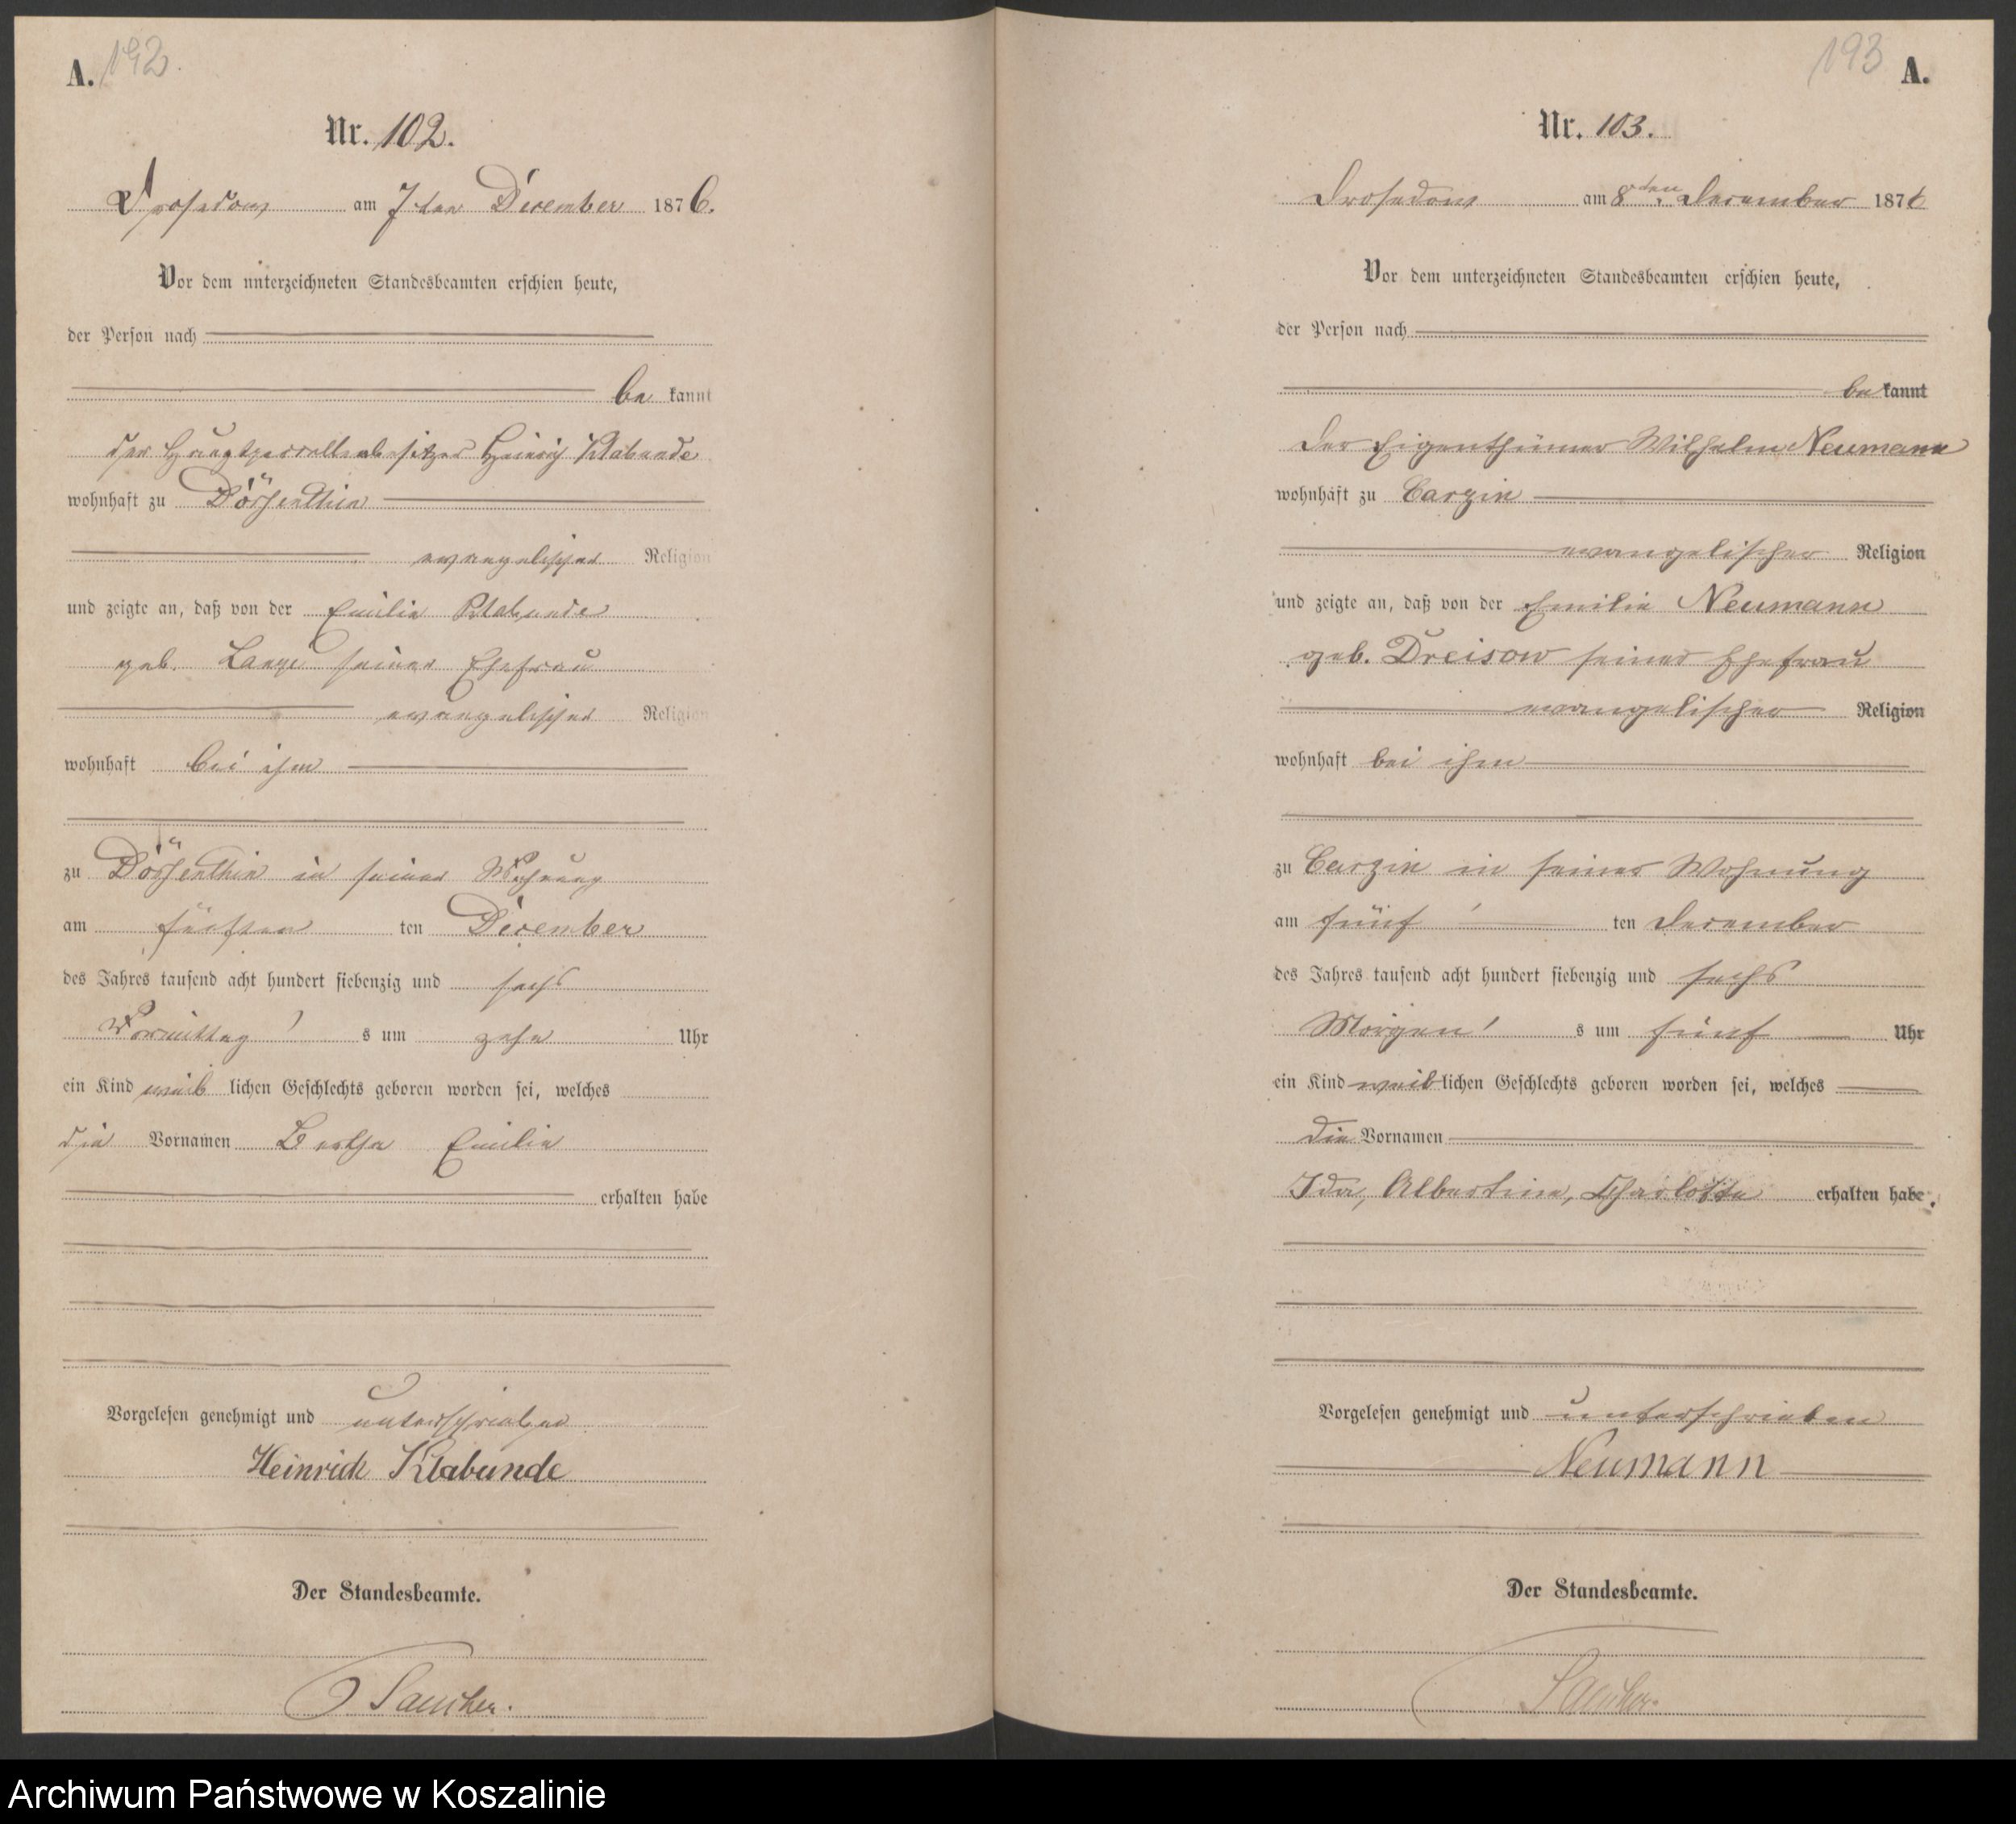 A. 192.
Nr. 102.
Drosedow am 7ten December 1876.
Vor dem unterzeichneten Standesbeamten erschien heute,
der Person nach
be kannt
der Heinrich Klabunde
wohnhaft zu Dörsenthin
evangelischer Religion
und zeigte an, daß von der Emilie Klabunde
geb. Lange seiner Ehefrau
evangelischer Religion
wohnhaft bei ihm
zu Dörsenthin in seiner Wohnung
am fünften ten December
des Jahres tausend acht hundert siebenzig und sechs
Vormittag s um zehn Uhr
ein Kind weib lichen Geschlechts geboren worden sei, welches
die Vornamen Bertha Emilie
erhalten habe
Vorgelesen genehmigt und unterschrieben
Heinrich Klabunde
Der Standesbeamte.
193 A.
Nr. 103.
Drosedow am 8ten December 1876
Vor dem unterzeichneten Standesbeamten erschien heute,
der Person nach
be kannt
der Eigenthümer Wilhelm Neumann
wohnhaft zu Carzin
evangelischer Religion
und zeigte an, daß von der Emilie Neumann
geb. Dreisow seiner Ehefrau
evangelischer Religion
wohnhaft bei ihm
zu Carzin in seiner Wohnung
am fünf ten December
des Jahres tausend acht hundert siebenzig und sechs
Morgen s um fünf Uhr
ein Kind weib lichen Geschlechts geboren worden sei, welches
die Vornamen
Ida, Albertine, Charlotte erhalten habe.
Vorgelesen genehmigt und unterschrieben
Neumann
Der Standesbeamte.
Archiwum Państwowe w Koszalinie